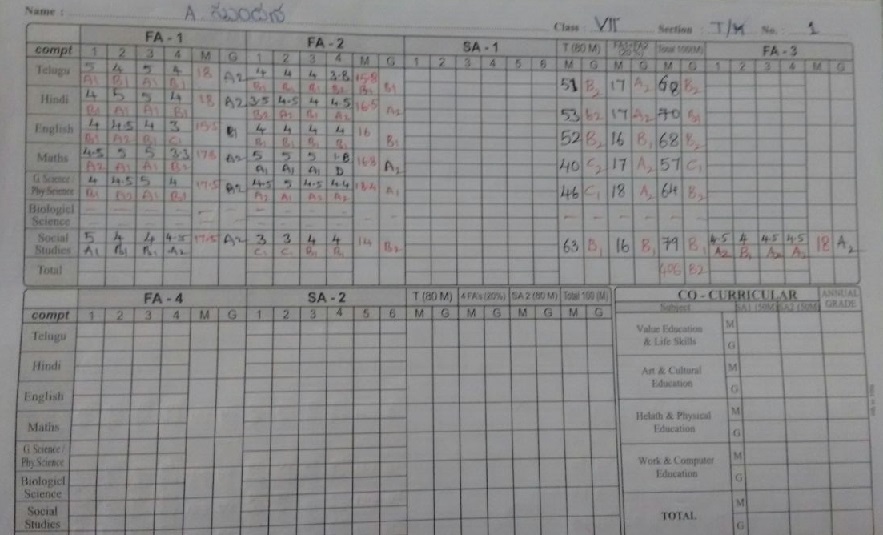 Name : A.
Class : VII Section : T/M No. 1
FA - 1 FA - 2 SA - 1 T (80 M) Total 100(M) FA - 3
compt 1 2 3 4 M G 1 2 3 4 M G 1 2 3 4 5 6 M G M G M G 1 2 3 4 M G
Telugu 5 4 5 4 18 A2 4 4 4 3.8 15.8 B1 51 B2 17 A2 68 B2
A1 B1 A1 B1 B1 B1 B1 B1
Hindi 4 5 5 4 18 A2 3.5 4.5 4 4.5 16.5 A2 53 B2 17 A2 70 B1
B1 A1 A1 B1 B1 A2 B1 A2
English 4 4.5 4 3 15.5 B1 4 4 4 4 16 B1 52 B2 16 B1 68 B2
B1 A2 B1 C1 B1 B1 B1 B1
Maths 4.5 5 5 3.3 A2 5 5 5 1.8 16.8 A2 40 C2 17 A2 57 C1
A2 A1 A1 B2 A1 A1 A1 D
G Science / Phy Science 4 4.5 5 4 17.5 A2 4.5 5 4.5 4.4 18.4 A1 46 C1 18 A2 64 B2
B1 A2 A1 B1 A2 A1 A2 A2
Biologicl Science - - - - - - - - - - - - - - - - -
Social Studies 5 4 4 4.5 17.5 A2 3 3 4 4 14 B2 63 B1 16 B1 79 B1 4.5 4 4.5 4.5 18 A2
A1 B1 B1 A2 C1 C1 B1 B1 A2 B1 A2 A2
Total 406 B2
FA - 4 SA - 2 T (80 M) 4 FA's (20%) SA 2 (80 M) Total 100 (M) CO - CURRICULAR ANNUAL GRADE
compt 1 2 3 4 M G 1 2 3 4 5 6 M G M G M G M G Subject SA1 (50M) SA2 (50M)
Telugu Value Education & Life Skills M G
Hindi Art & Cultural Education M G
English
Maths Helath & Physical Education M G
G Science / Phy Science Work & Computer Education M G
Biologicl Science
Social Studies TOTAL M G